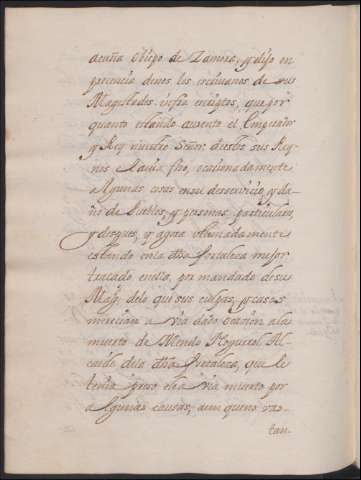 acuña Obispo de Zamora, y dijo en
presencia denos los escriuanos de sus
Magestades infra escriptos, que por
quanto estando ausente el Emperador
y Rey nuestro Señor destos sus Rey-
nos hauia fho,
algunas cosas en su deseruicio, y da-
ño de Pueblos, y personas particulares,
y despues, y agora vltimadamente
estando en la dha fortaleza mejor
tratado enella, por mandado de su
Mag.d delo qui sus culpas, y casos
merecian a via dado ocasion ala
muerte de Mendo Noguerol Al-
caide dela dha fortaleza, que le
tenia preso ele a via muerto por
algunas causas, aun que no vas-
tan